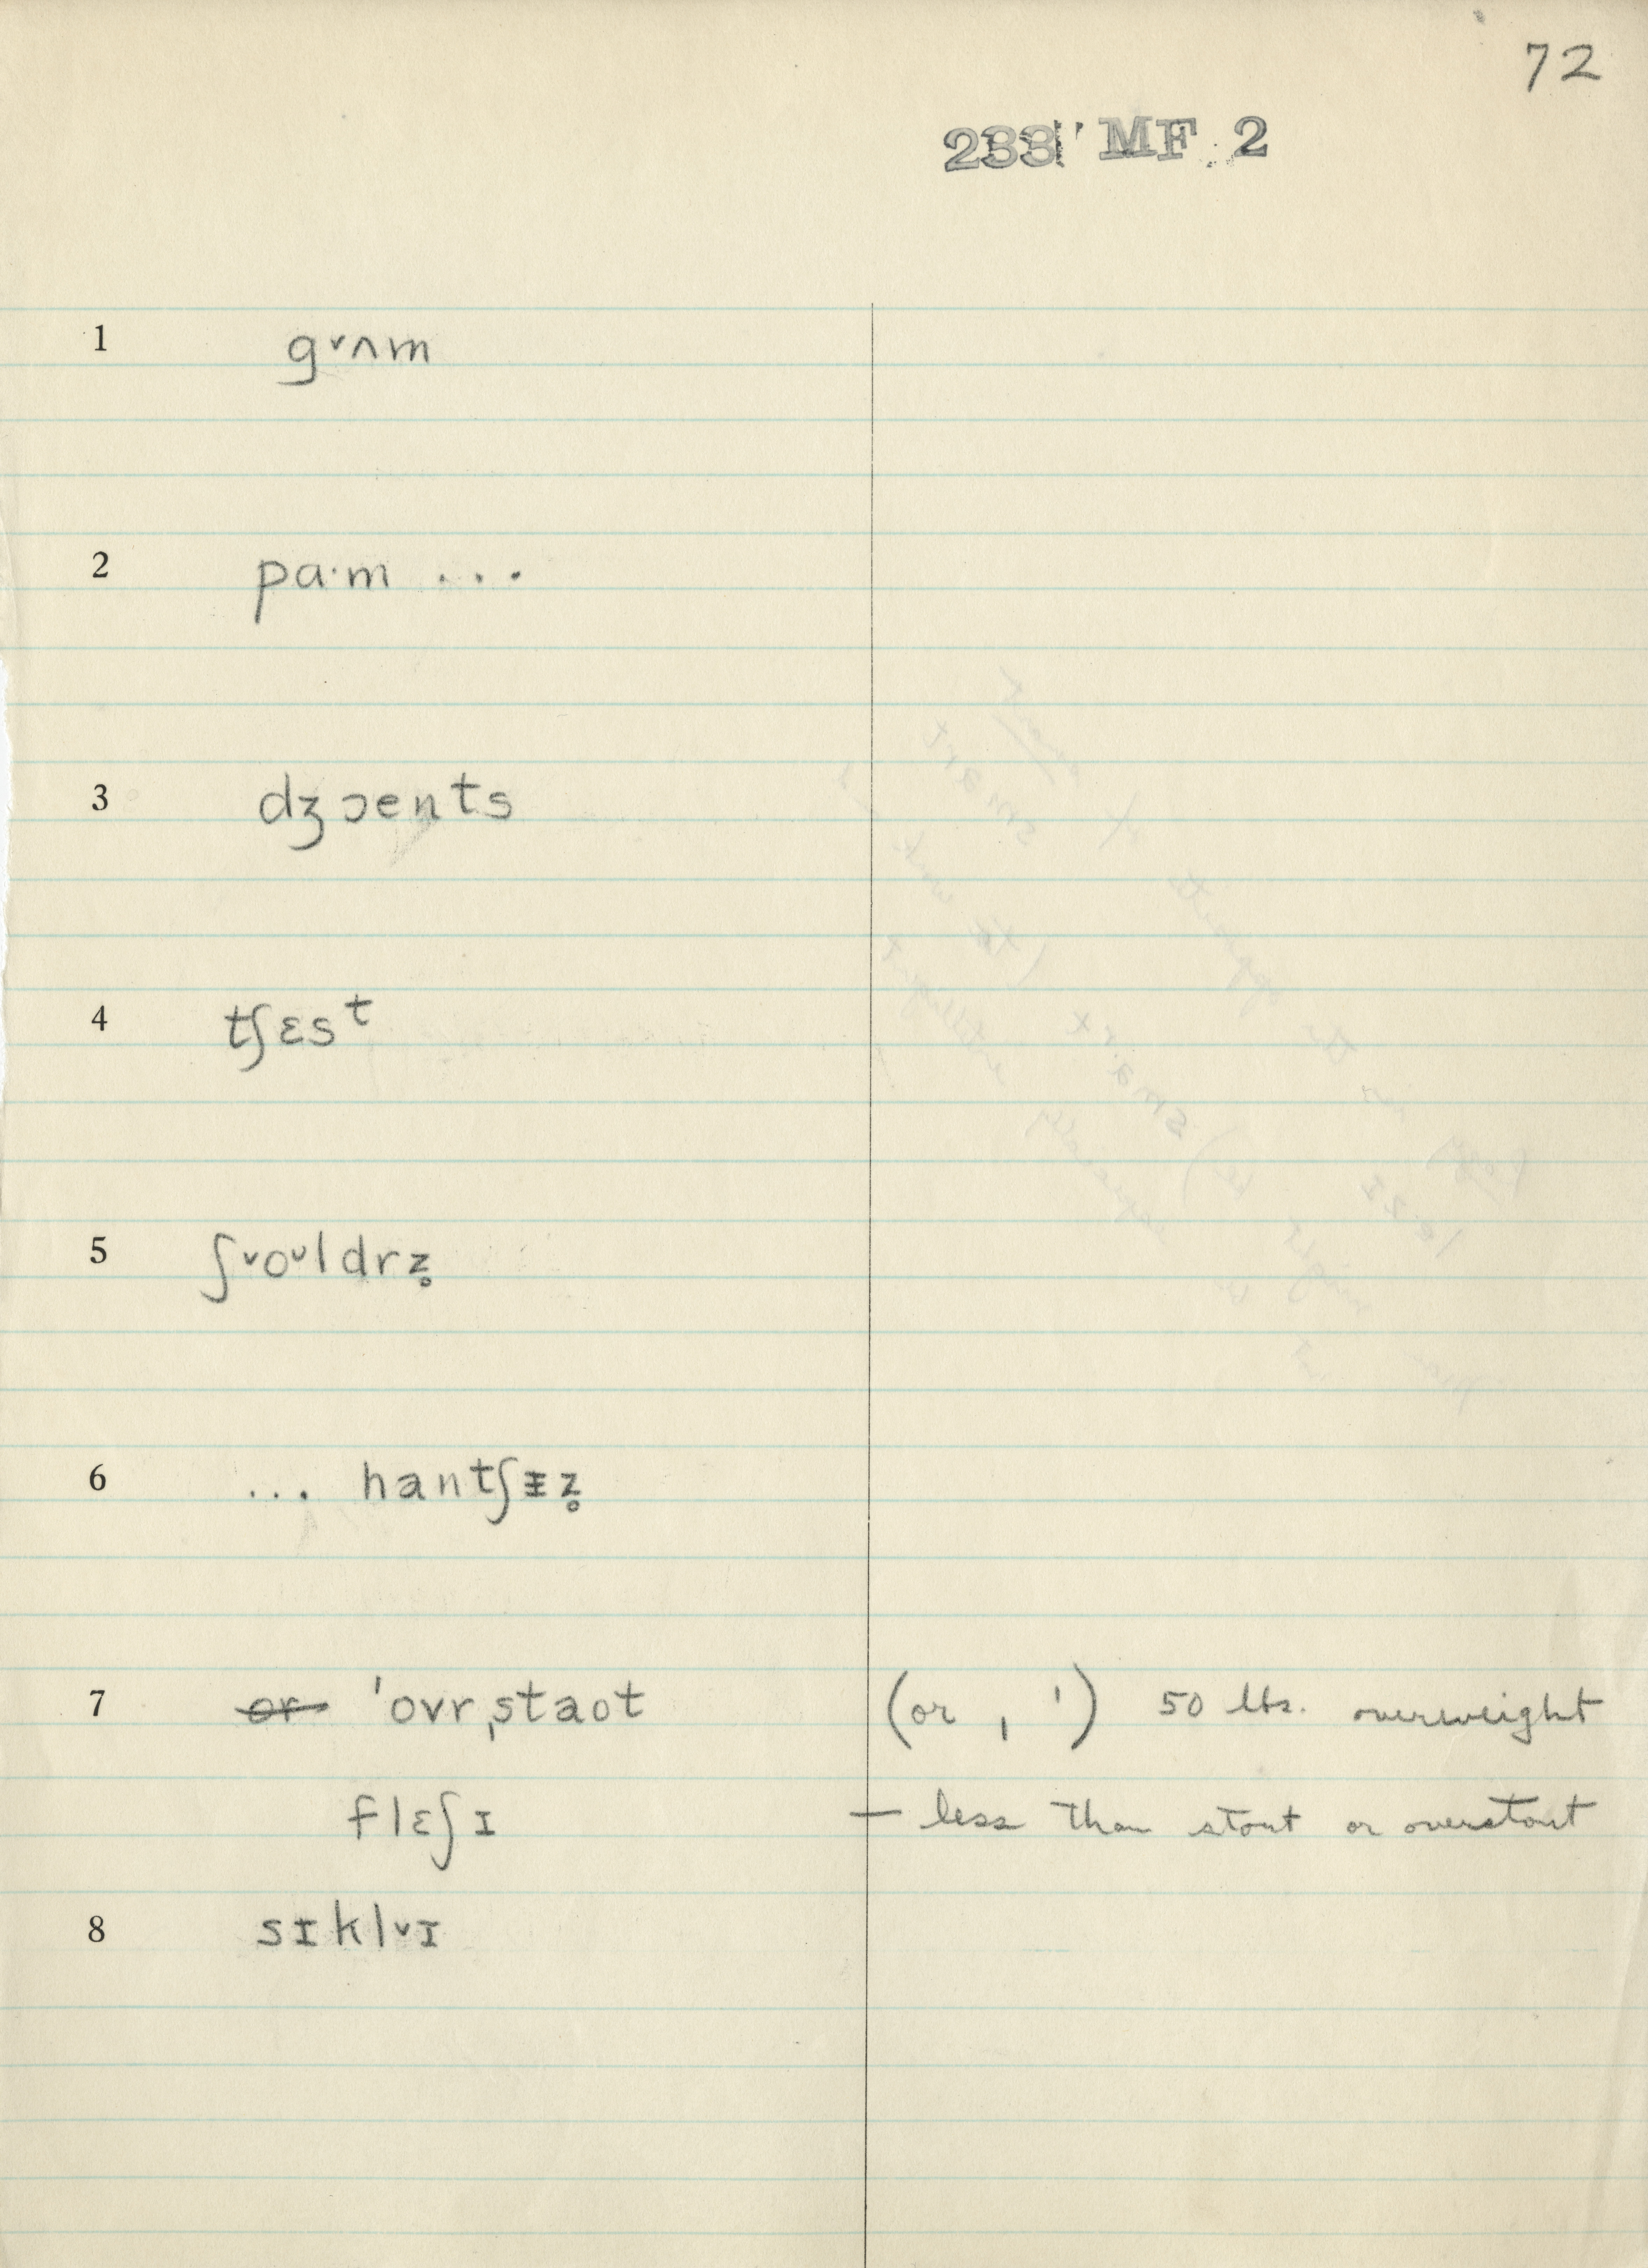 72
233 MF 2
1 gᵛʌm
2 pa·m ...
3 dʒɔents
4 tʃɛsᵗ
5 ʃᵛoᵛldrz̥
6 ... hantʃɪ̵z̥
7 or ˈovrˌstaot (or ˌ ˈ) 50 lbs. overweight
flɛʃɪ — less than stout or overstout
8 sɪklᵛɪ